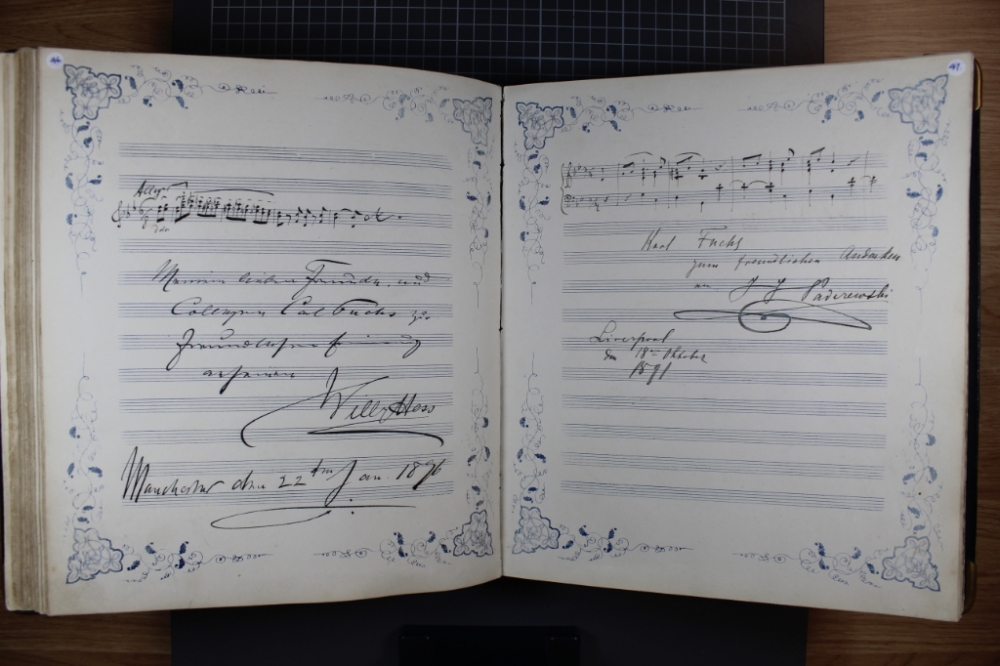 46.
Allegro
Meinem lieben Freunde und
Collegen Carl Fuchs zur
freundlichen Erinnerung
an seinen
Willy Hess
Manchester den 22ten Jan. 1896
47.
Karl Fuchs
zum freundlichen Andenken
an J J Paderewski
Liverpool
den 18ten Oktober
1891